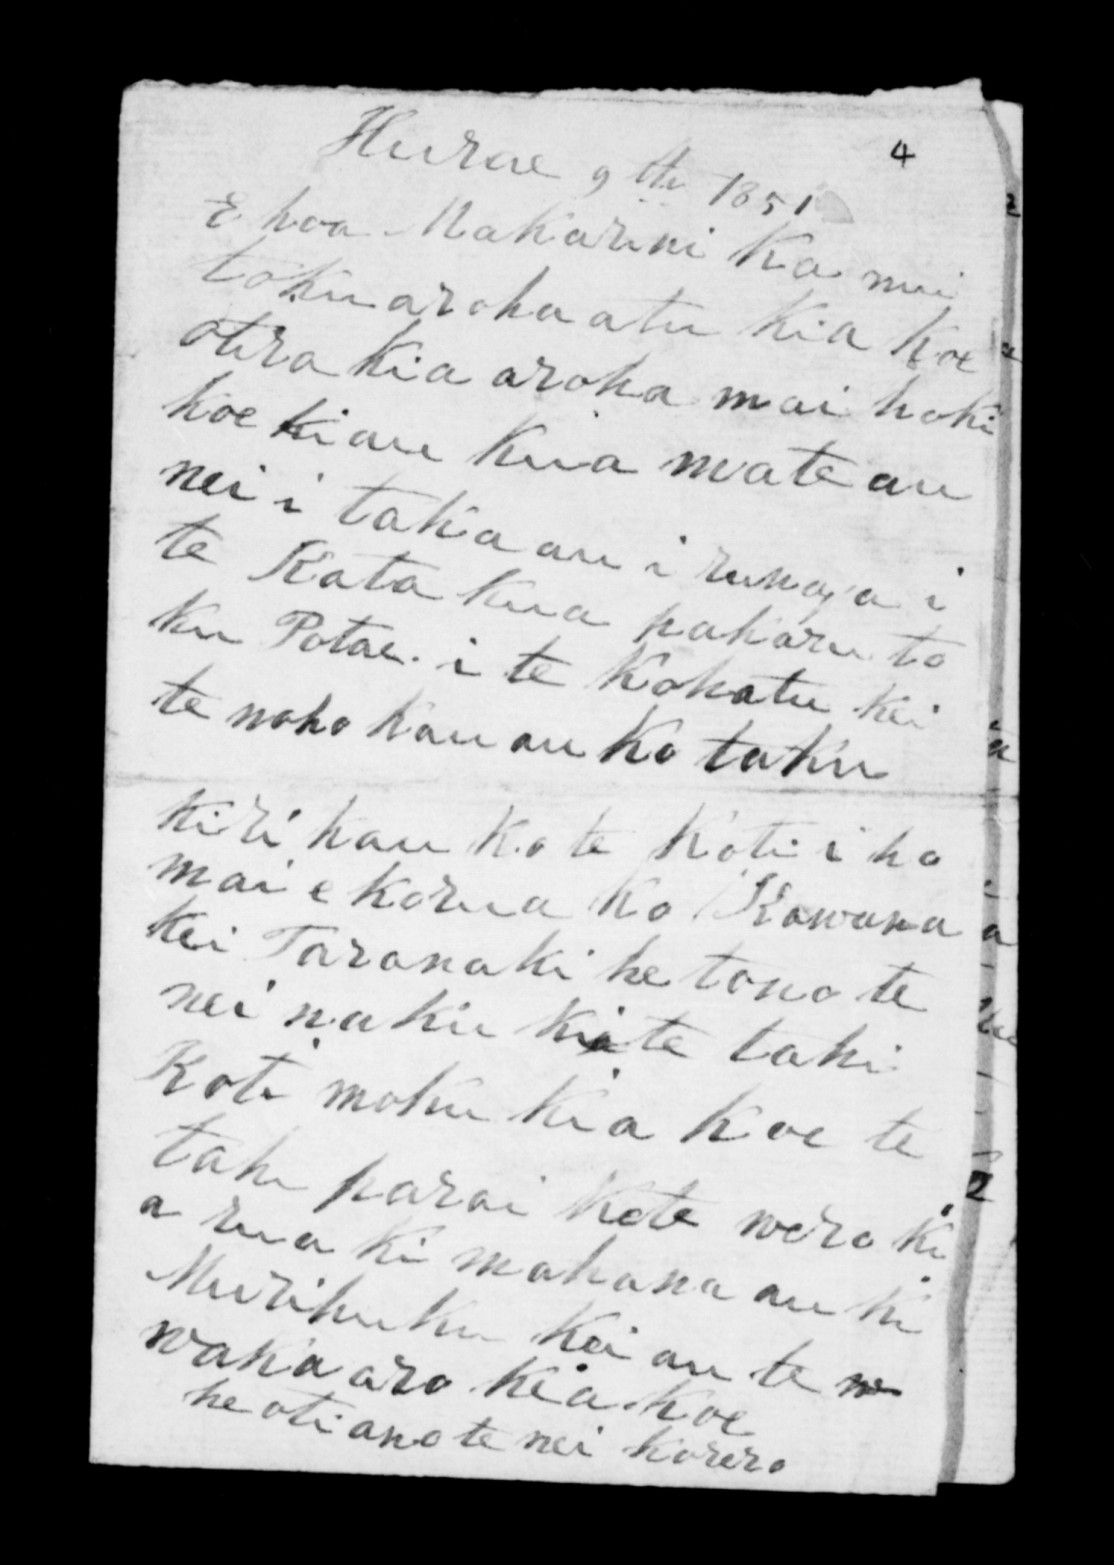 4
Hurae 9th 1851
E hoa Makarini Ka nui
toku aroha atu Kia Koe
otira Kia aroha mai hoki
koe kiau Kua mate au
nei i taka au i runga i
te Kata Kua pakaru to
ku Potae. i te Kohatu kei
te noho kau au Ko taku
kiri kau Ko te Koti i ho
mai e korua Ko Kawana
kei Taranaki he tono te
nei naku kite tahi
Koti moku Kia Koe te
tahi parai Kete wero ki
a rua ki mahana au ki
Murihuku Kei au te w
waka aro kia koe
he oti ano te nei korero